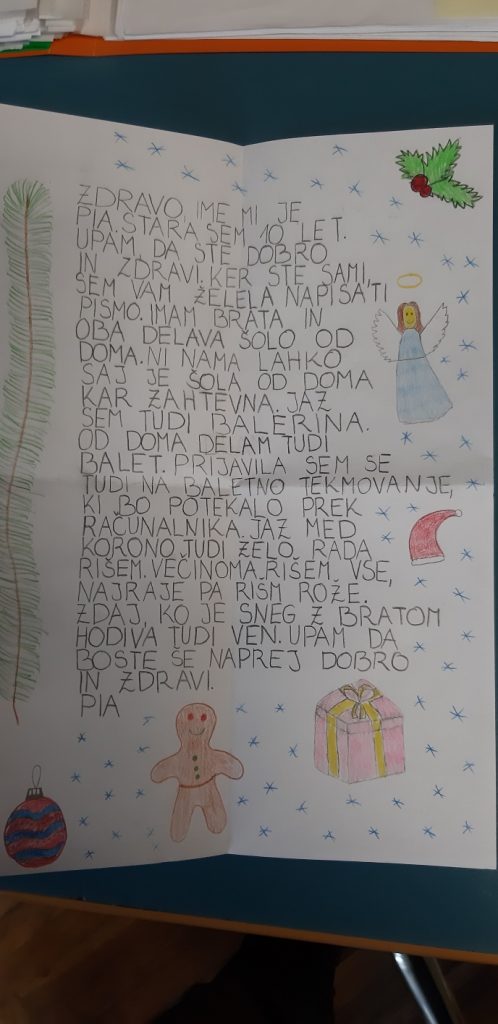 ZDRAVO, IME MI JE
PIA. STARA SEM 10 LET.
UPAM, DA STE DOBRO
IN ZDRAVI. KER STE SAMI,
SEM VAM ŽELELA NAPISATI
PISMO. IMAM BRATA IN
OBA DELAVA ŠOLO OD
DOMA. NI NAMA LAHKO
SAJ JE ŠOLA OD DOMA
KAR ZAHTEVNA. JAZ
SEM TUDI BALERINA.
OD DOMA DELAM TUDI
BALET. PRIJAVILA SEM SE
TUDI NA BALETNO TEKMOVANJE,
KI BO POTEKALO PREK
RAČUNALNIKA. JAZ MED
KORONO TUDI ZELO RADA
RIŠEM. VEČINOMA RIŠEM VSE,
NAJRAJE PA RIŠM ROŽE.
ZDAJ, KO JE SNEG Z BRATOM
HODIVA TUDI VEN. UPAM DA
BOSTE ŠE NAPREJ DOBRO
IN ZDRAVI.
PIA